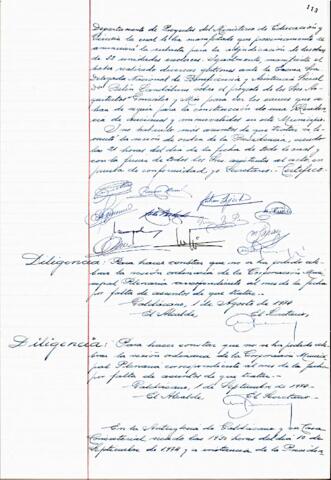 113
Departamento de Proyectos del Ministerio de Educación y
Ciencia la cual le ha manifestado que próximamente se
anunciará la subasta para la adjudicación de
de 22 unidades escolares. Igualmente manifiesta el
haber realizado diversas gestiones ante la
Delegada Nacional de Beneficencia y Asistencia Social
sobre el proyecto de los Srs. Ar-
quitectos González y para ver los cauces que se
han de seguir para la construcción de una
de Ancianos y minusválidos en este Municipio.
Y no habiendo más asuntos que tratar se le-
vantó la sesión de orden de la Presidencia, siendo
las 21 horas del día de la fecha de todo lo cual y
con la firma de todos los Srs. asistentes al acto, en
prueba de conformidad, yo Secretario. Certifico.
Diligencia: Para hacer constar que no se ha podido cele-
brar la sesión ordinaria de la Corporación Muni-
cipal Plenaria correspondiente al mes de la fecha
por falta de asuntos de que tratar.
Galdácano, 1 de Agosto de 1974
El Alcalde, El Secretario,
Diligencia: Para hacer constar que no se ha podido cele-
brar la sesión ordinaria de la Corporación Munici-
pal Plenaria correspondiente al mes de la fecha
por falta de asuntos de que tratar.
Galdácano, 1 de Septiembre de 1974.
El Alcalde, El Secretario,
En la Anteiglesia de Galdácano y su Casa
Consistorial siendo las 19,30 horas del día 10 de
Septiembre de 1974 y a instancia de la Presiden-